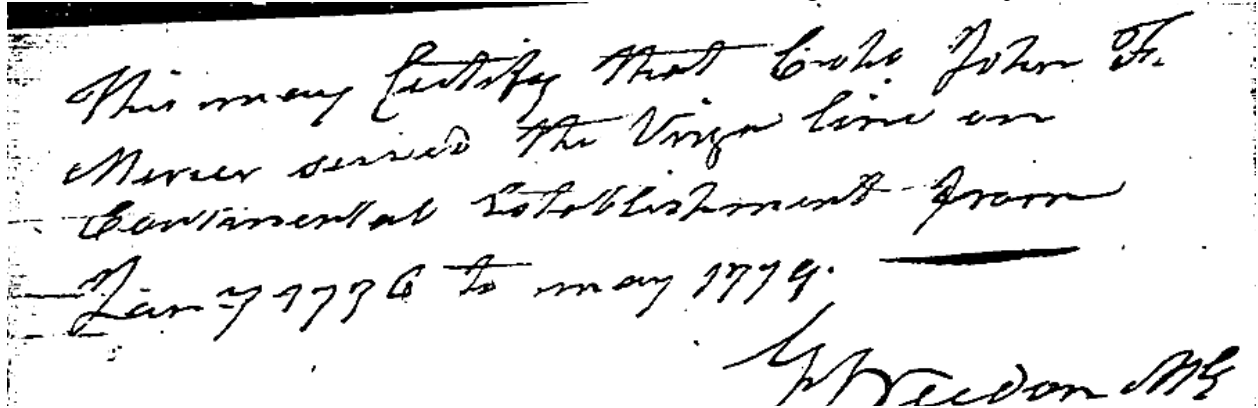 This may Certify that Colo. John F.
Mercer served the Virga line on
Continental Establishment from
Jany 1776 to may 1779.
G Weedon MG